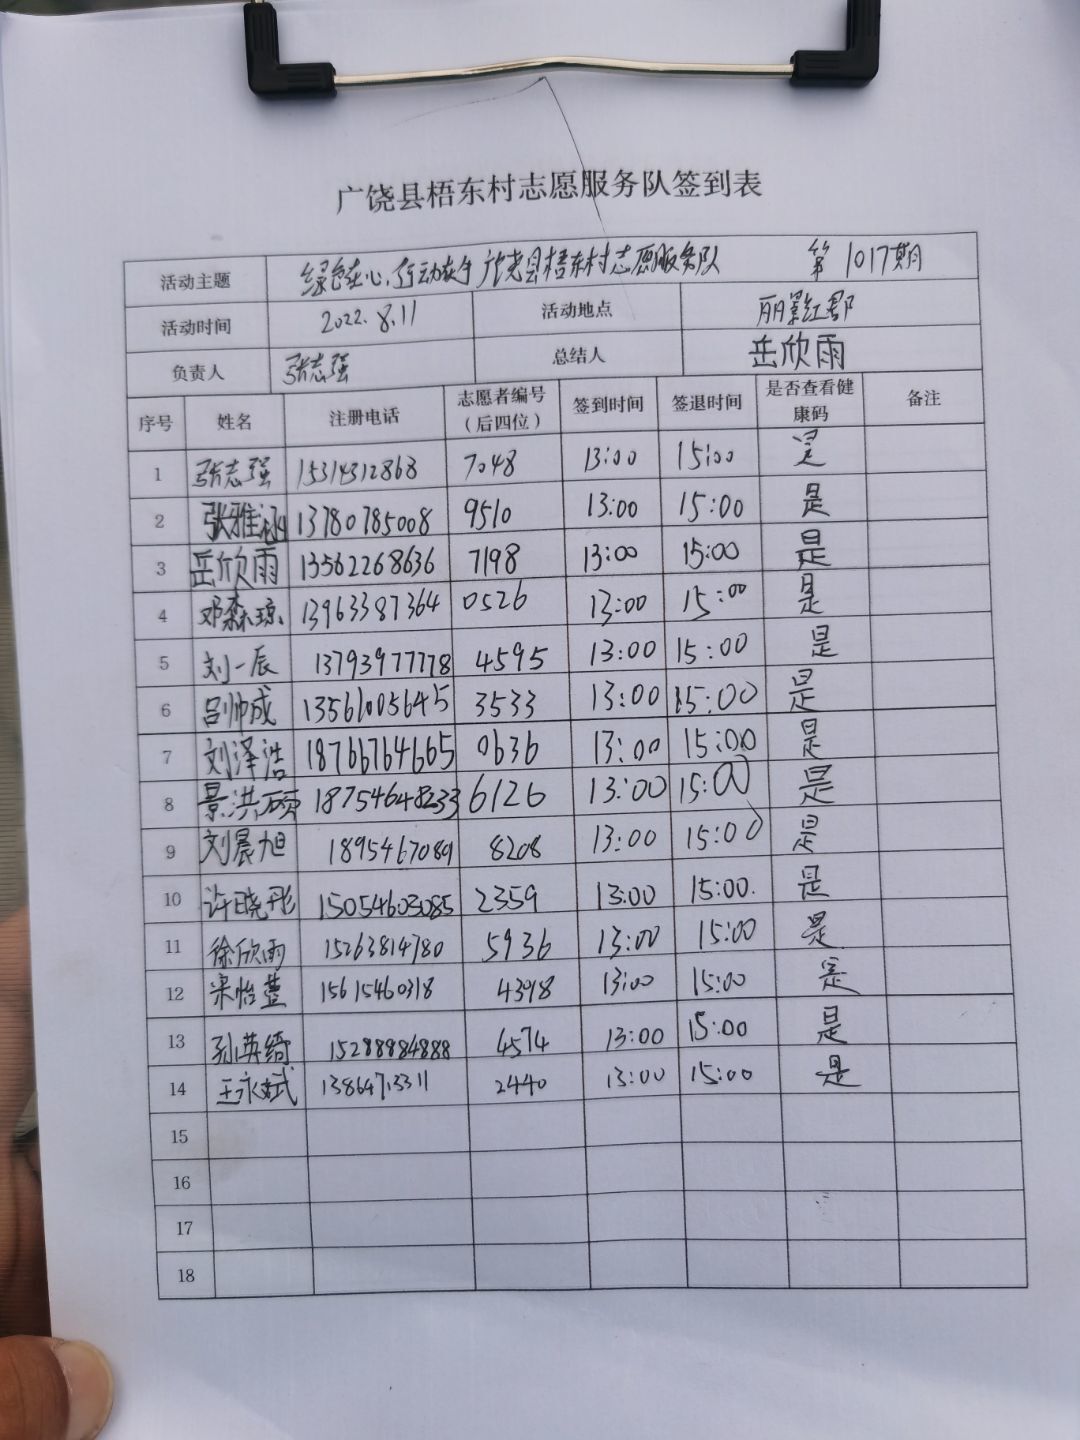 广饶县梧东村志愿服务队签到表
活动主题 绿色在心,行动在手 广饶县梧东村志愿服务队 第1017期
活动时间 2022.8.11 活动地点 丽景红郡
负责人 张志强 总结人 岳欣雨
序号 姓名 注册电话 志愿者编号(后四位) 签到时间 签退时间 是否查看健康码 备注
1 张志强 15314312868 7048 13:00 15:00 是
2 张雅涵 13780785008 9510 13:00 15:00 是
3 岳欣雨 13562268636 7198 13:00 15:00 是
4 邓森琼 13963387364 0526 13:00 15:00 是
5 刘一辰 13793977778 4595 13:00 15:00 是
6 吕帅成 13561005645 3533 13:00 15:00 是
7 刘泽浩 18766764665 0636 13:00 15:00 是
8 景洪硕 18754648233 6126 13:00 15:00 是
9 刘晨旭 1895467089 8208 13:00 15:00 是
10 许晓彤 15054603085 2359 13:00 15:00. 是
11 徐欣雨 15263814780 5936 13:00 15:00 是
12 宋怡萱 15615460318 4398 13:00 15:00 是
13 孙英绮 15288884888 4574 13:00 15:00 是
14 王永斌 2440 13:00 15:00 是
15
16
17
18